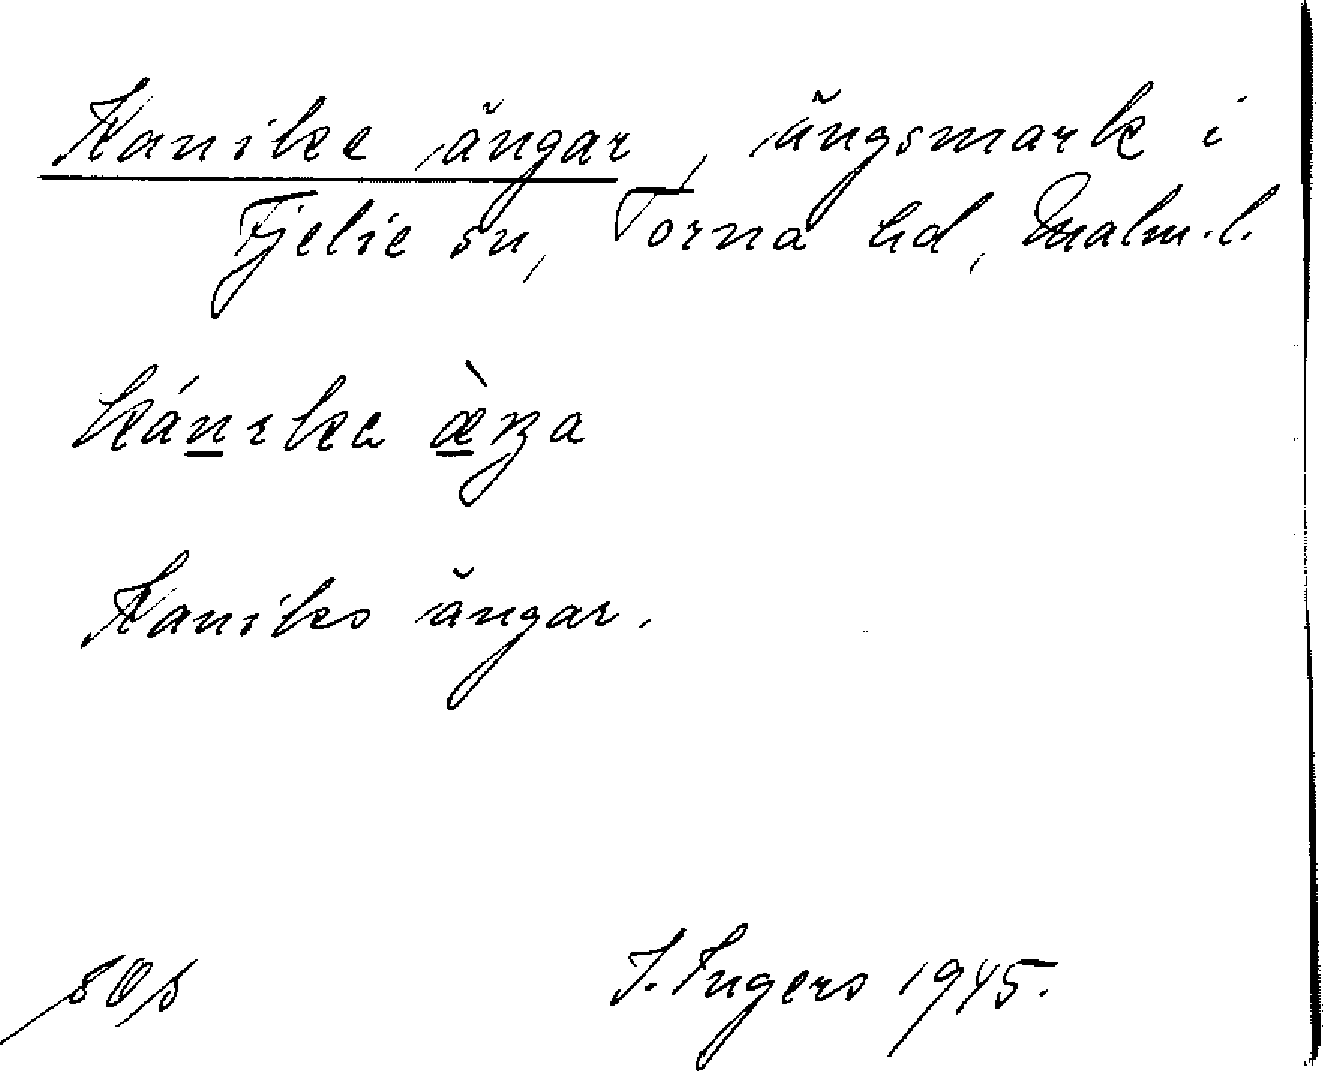 Kanike ängar, ängsmark i
Fjelie sn, Torna hd, Malm.l.
kánıkə æ̀ŋa
Kaniks ängar.
I. Ingers 1945.